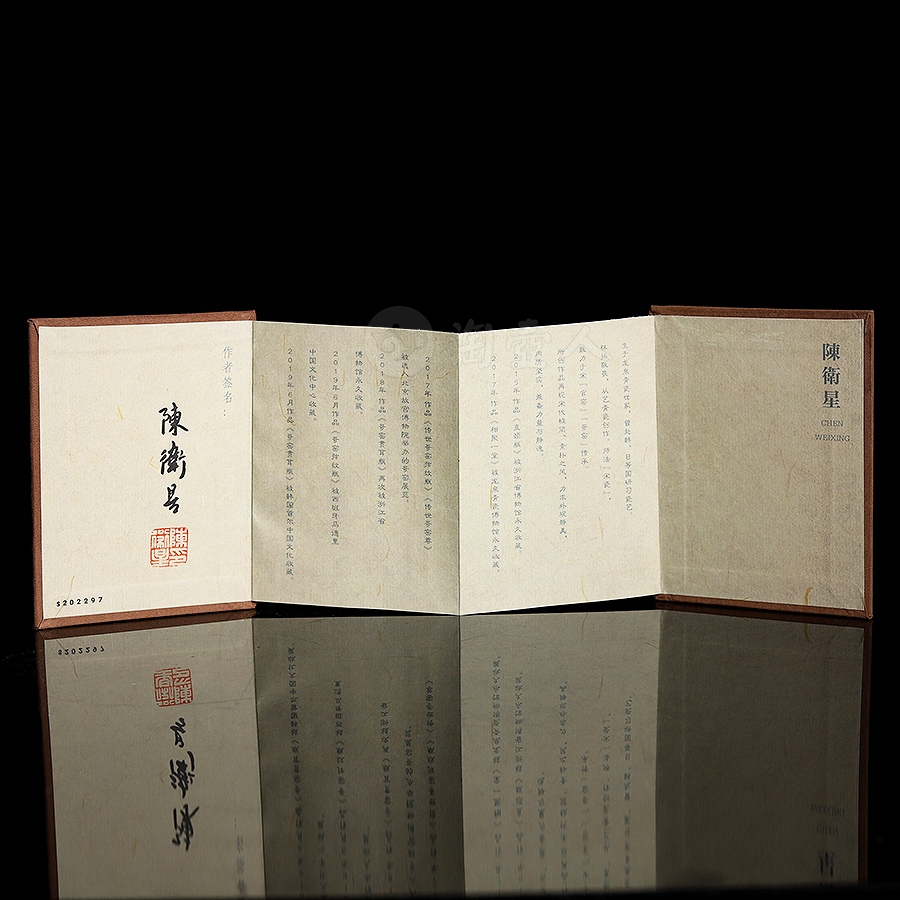 陳衛星
CHEN
WEIXING
生于龙泉青瓷世家，曾赴韩、日等国研习瓷艺。
怀揣敬畏，从艺青瓷创作，师法“宋瓷”，
致力于宋“官窑”“哥窑”传承，
所创作品再现宋代极简、素朴之风，力求外观静美、
内质坚实，兼备力量与静逸。
2015年作品《直颈瓶》被浙江省博物馆永久收藏。
2017年作品《相聚一堂》被龙泉青瓷博物馆永久收藏。
2017年作品《传世哥窑弦纹瓶》《传世哥窑尊》
被选入北京故宫博物院举办的哥窑展览。
2018年作品《哥窑贯耳瓶》再次被浙江省
博物馆永久收藏。
2019年6月作品《哥窑弦纹瓶》被西班牙马德里
中国文化中心收藏。
2019年6月作品《哥窑贯耳瓶》被韩国首尔中国文化收藏。
作者签名：
陳衛星
S202297